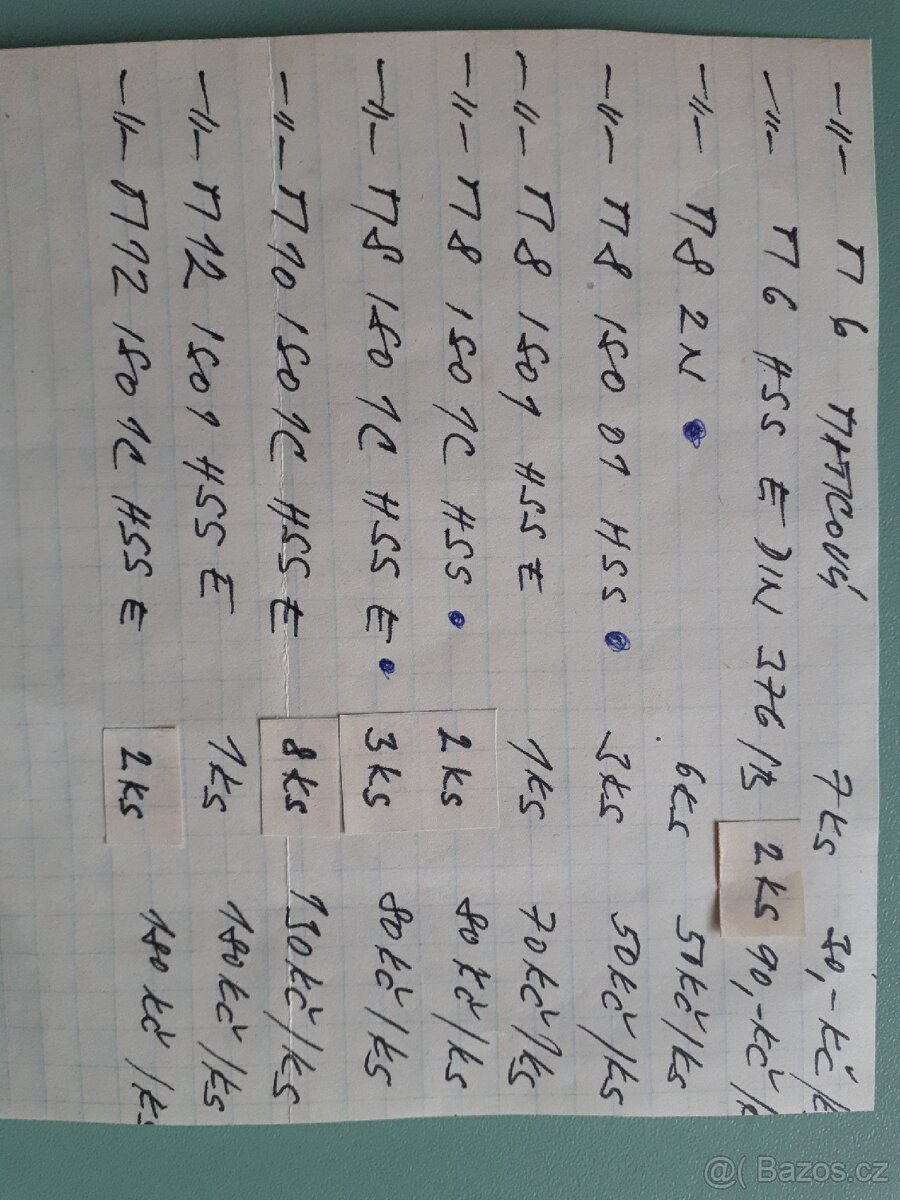 -"- M 6 MATICOVÝ 7ks 30,-Kč/
-"- M 6 HSS E DIN 376/ 2ks 90,-Kč/
-"- M8 2N 6ks 50Kč/ks
-"- M8 ISO 01 HSS 3ks 50Kč/ks
-"- M8 ISO1 HSS E 1ks 70Kč/ks
-"- M8 ISO 1C HSS 2ks 80Kč/ks
-"- M8 ISO 1C HSS E 3ks 80Kč/ks
-"- M10 ISO 1C HSS E 8ks 130Kč/ks
-"- M12 ISO1 HSS E 1ks 180Kč/ks
-"- M12 ISO 1C HSS E 2ks 180Kč/k
@( Bazos.cz